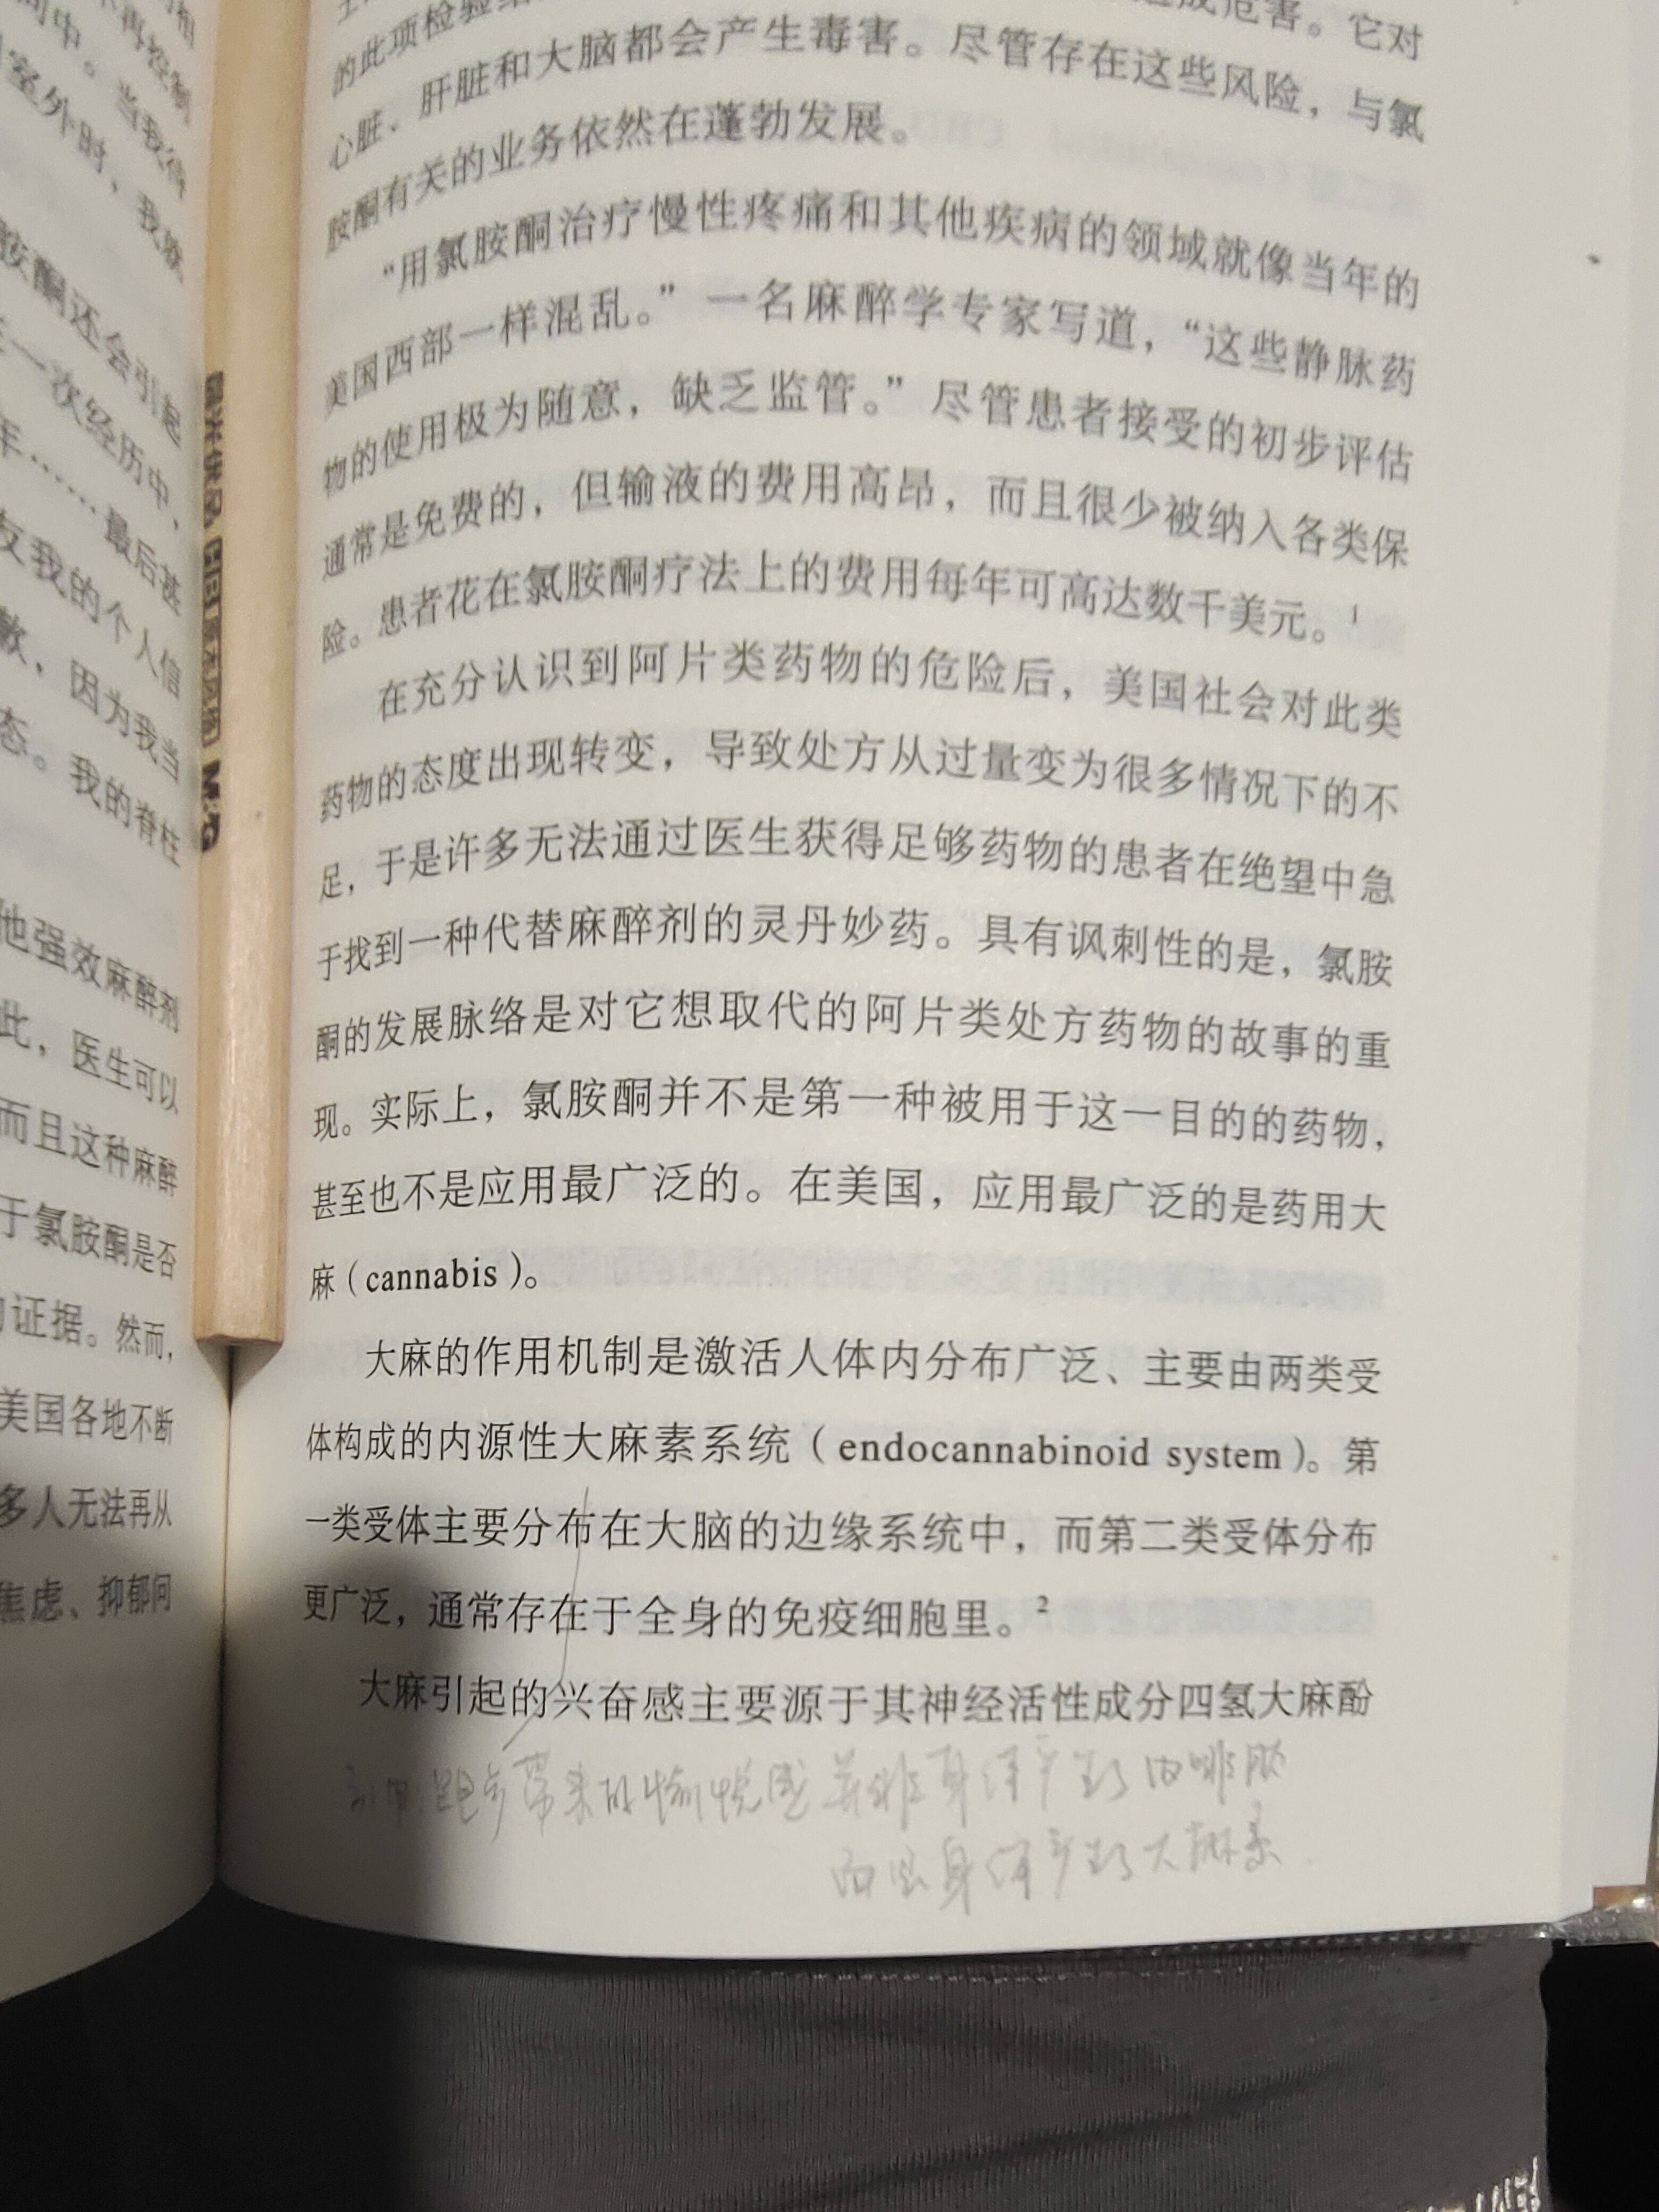 间中。当我停
室外时，我就
胺酮还会引起
一次经历中，
年……最后甚
友我的个人信
敏，因为我当
态。我的脊柱
他强效麻醉剂
此，医生可以
而且这种麻醉
于氯胺酮是否
证据。然而，
美国各地不断
多人无法再从
焦虑、抑郁问
成危害。它对
的此项检验结
心脏、肝脏和大脑都会产生毒害。尽管存在这些风险，与氯
胺酮有关的业务依然在蓬勃发展。
“用氯胺酮治疗慢性疼痛和其他疾病的领域就像当年的
美国西部一样混乱。”一名麻醉学专家写道，“这些静脉药
物的使用极为随意，缺乏监管。”尽管患者接受的初步评估
通常是免费的，但输液的费用高昂，而且很少被纳入各类保
险。患者花在氯胺酮疗法上的费用每年可高达数千美元。1
在充分认识到阿片类药物的危险后，美国社会对此类
药物的态度出现转变，导致处方从过量变为很多情况下的不
足，于是许多无法通过医生获得足够药物的患者在绝望中急
于找到一种代替麻醉剂的灵丹妙药。具有讽刺性的是，氯胺
酮的发展脉络是对它想取代的阿片类处方药物的故事的重
现。实际上，氯胺酮并不是第一种被用于这一目的的药物，
甚至也不是应用最广泛的。在美国，应用最广泛的是药用大
麻（cannabis）。
大麻的作用机制是激活人体内分布广泛、主要由两类受
体构成的内源性大麻素系统（endocannabinoid system）。第
一类受体主要分布在大脑的边缘系统中，而第二类受体分布
更广泛，通常存在于全身的免疫细胞里。2
大麻引起的兴奋感主要源于其神经活性成分四氢大麻酚
跑步带来的愉悦感并非身体产生了内啡肽
而是身体产生了大麻素